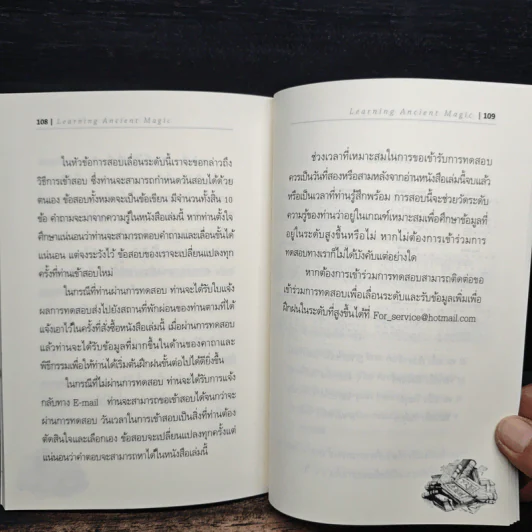 108 | Learning Ancient Magic
ในหัวข้อการสอบเลื่อนระดับนี้เราจะขอกล่าวถึง
วิธีการเข้าสอบ ซึ่งท่านจะสามารถกำหนดวันสอบได้ด้วย
ตนเอง ข้อสอบทั้งหมดจะเป็นข้อเขียน มีจำนวนทั้งสิ้น 10
ข้อ คำถามจะมาจากความรู้ในหนังสือเล่มนี้ หากท่านตั้งใจ
ศึกษาแน่นอนว่าท่านจะสามารถตอบคำถามและเลื่อนขั้นได้
แน่นอน แต่จงระวังไว้ ข้อสอบของเราจะเปลี่ยนแปลงทุก
ครั้งที่ท่านเข้าสอบใหม่
ในกรณีที่ท่านผ่านการทดสอบ ท่านจะได้รับใบแจ้ง
ผลการทดสอบส่งไปยังสถานที่พักผ่อนของท่านตามที่ได้
แจ้งเอาไว้ในครั้งที่สั่งซื้อหนังสือเล่มนี้ เมื่อผ่านการทดสอบ
แล้วท่านจะได้รับข้อมูลที่มากขึ้นในด้านของคาถาและ
พิธีกรรมเพื่อให้ท่านได้เริ่มต้นฝึกฝนขั้นต่อไปได้ดียิ่งขึ้น
ในกรณีที่ไม่ผ่านการทดสอบ ท่านจะได้รับการแจ้ง
กลับทาง E-mail ท่านจะสามารถขอเข้าสอบได้จนกว่าจะ
ผ่านการทดสอบ วันเวลาในการเข้าสอบเป็นสิ่งที่ท่านต้อง
ตัดสินใจและเลือกเอง ข้อสอบจะเปลี่ยนแปลงทุกครั้งแต่
แน่นอนว่าคำตอบจะสามารถหาได้ในหนังสือเล่มนี้
Learning Ancient Magic | 109
ช่วงเวลาที่เหมาะสมในการขอเข้ารับการทดสอบ
ควรเป็นวันที่สองหรือสามหลังจากอ่านหนังสือเล่มนี้จบแล้ว
หรือเป็นเวลาที่ท่านรู้สึกพร้อม การสอบนี้จะช่วยวัดระดับ
ความรู้ของท่านว่าอยู่ในเกณฑ์เหมาะสมเพื่อศึกษาข้อมูลที่
อยู่ในระดับสูงขึ้นหรือไม่ หากไม่ต้องการเข้าร่วมการ
ทดสอบทางเราก็ไม่ได้บังคับแต่อย่างใด
หากต้องการเข้าร่วมการทดสอบสามารถติดต่อขอ
เข้าร่วมการทดสอบเพื่อเลื่อนระดับและรับข้อมูลเพิ่มเพื่อ
ฝึกฝนในระดับที่สูงขึ้นได้ที่ For_service@hotmail.com